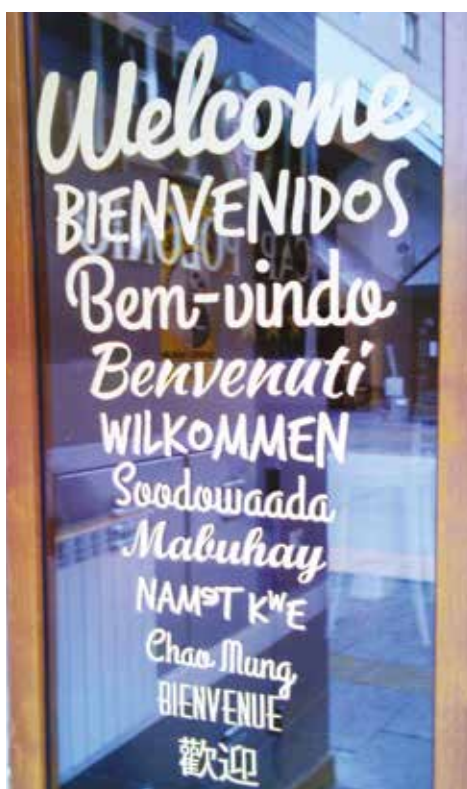 Welcome
BIENVENIDOS
Bem-vindo
Benvenuti
WILKOMMEN
Soodowaada
Mabuhay
NAMST KWE
Chao Mung
BIENVENUE
歡迎